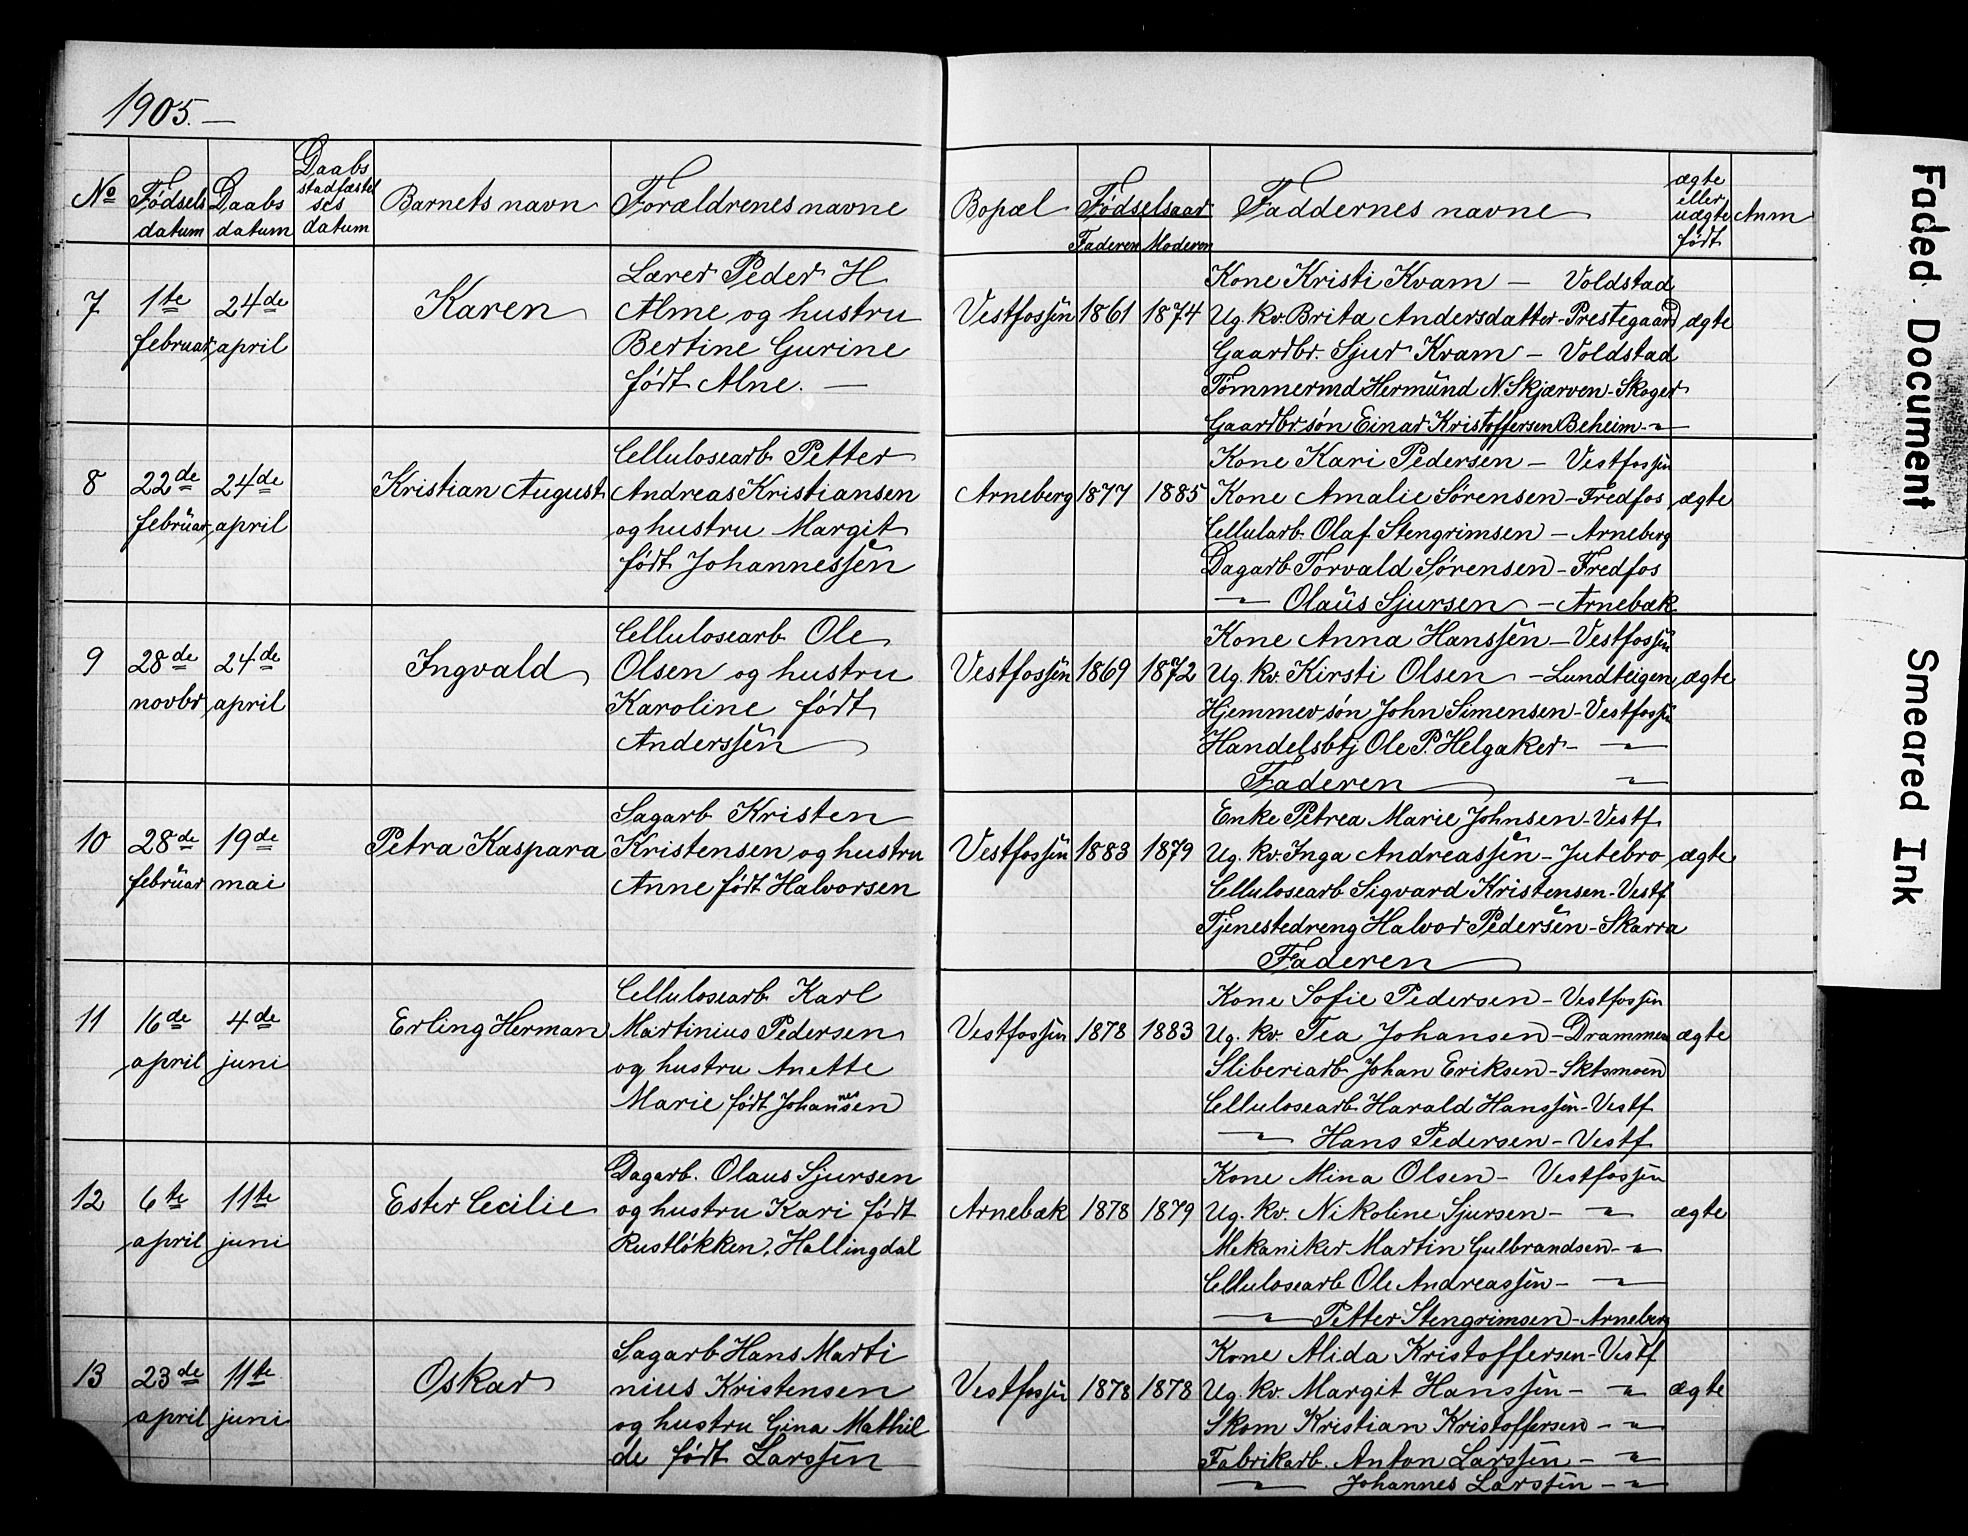 1905.—
No Fødsels datum Daabs datum Daabs stadfæstel ses datum Barnets navn Forældrenes navne Bopæl Fødselsaar Faderen Moderen Faddernes navne ægte eller uægte født Anm
7 1te februar 24de april Karen Vestfossen 1861 1874 ægte
Lærer Peder H
Alme og hustru
Bertine Gurine
født Alne. —
Kone Kristi Kvam — Voldstad
Ug. kv. Brita Andersdatter - Prestegaard
Gaardbr. Sjur Kvam — Voldstad
Tømmermd Hermund N. Skjærven - Skoger
Gaardbr.søn Einar Kristoffersen Beheim - "
8 22de februar 24de april Kristian August Arneberg 1877 1885 ægte
Cellulosearb. Petter
Andreas Kristiansen
og hustru Margit
født Johannessen
Kone Kari Pedersen — Vestfossen
Kone Amalie Sørensen — Fredfos
Cellularb. Olaf Stengrimsen — Arneberg
Dagarb. Torvald Sørensen — Fredfos
" Olaus Sjursen — Arnebæk
9 28de novbr 24de april Ingvald Vestfossen 1869 1872 ægte
Cellulosearb. Ole
Olsen og hustru
Karoline født
Anderssen
Kone Anna Hanssen — Vestfossen
Ug. kv. Kirsti Olsen — Lundteigen
Hjemmev. søn John Simensen - Vestfossen
Handelsbtj Ole P. Helgaker - "
Faderen "
10 28de februar 19de mai Petra Kaspara Vestfossen 1883 1879 ægte
Sagarb. Kristen
Kristensen og hustru
Anne født Halvorsen
Enke Petrea Marie Johnsen - Vestf.
Ug. kv. Inga Andreassen - Jutebro
Cellulosearb Sigvard Kristensen - Vestf
Tjenestedreng Halvor Pedersen - Skarra
Faderen
11 16de april 4de juni Erling Herman Vestfossen 1878 1883 ægte
Cellulosearb. Karl
Martinius Pedersen
og hustru Anette
Marie født Johannesen
Kone Sofie Pedersen - Vestfossen
Ug. kv. Tea Johansen - Drammen
Sliberiarb Johan Eriksen - Sktsmoen
Cellulosearb. Harald Hanssen - Vestf
" Hans Pedersen - Vestf.
12 6te april 11te juni Ester Cecilie Arnebæk 1878 1879 ægte
Dagarb. Olaus Sjursen
og hustru Kari født
Rustløkken, Hallingdal
Kone Mina Olsen - Vestfossen
Ug. kv. Nikoline Sjursen - "
Mekaniker Martin Gulbrandsen - "
Cellulosearb Ole Andreassen - "
" Petter Stengrimsen - Arneberg
13 23de april 11te juni Oskar Vestfossen 1878 1878 ægte
Sagarb Hans Marti
nius Kristensen
og hustru Gina Mathil
de født Larssen
Kone Alida Kristoffersen - Vestf
Ug. kv. Margit Hanssen - "
Skom Kristian Kristoffersen - "
Fabrikarb. Anton Larssen - "
" Johannes Larssen - "
Faded Document
Smeared Ink